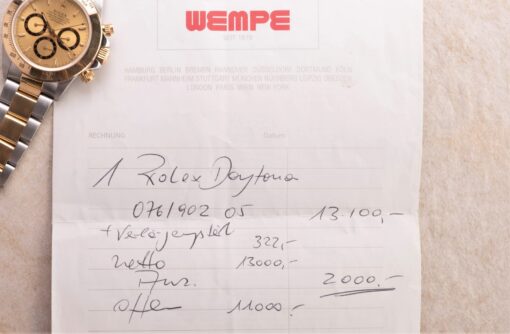 WEMPE
SEIT 1878
HAMBURG BERLIN BREMEN HANNOVER DÜSSELDORF DORTMUND KÖLN
FRANKFURT MANNHEIM STUTTGART MÜNCHEN NÜRNBERG LEIPZIG DRESDEN
LONDON PARIS WIEN NEW YORK
RECHNUNG
Datum
1 Rolex Daytona
0761902 05 13100,-
322,-
netto 13000,-
Anz. 2000,-
offen 11000,-